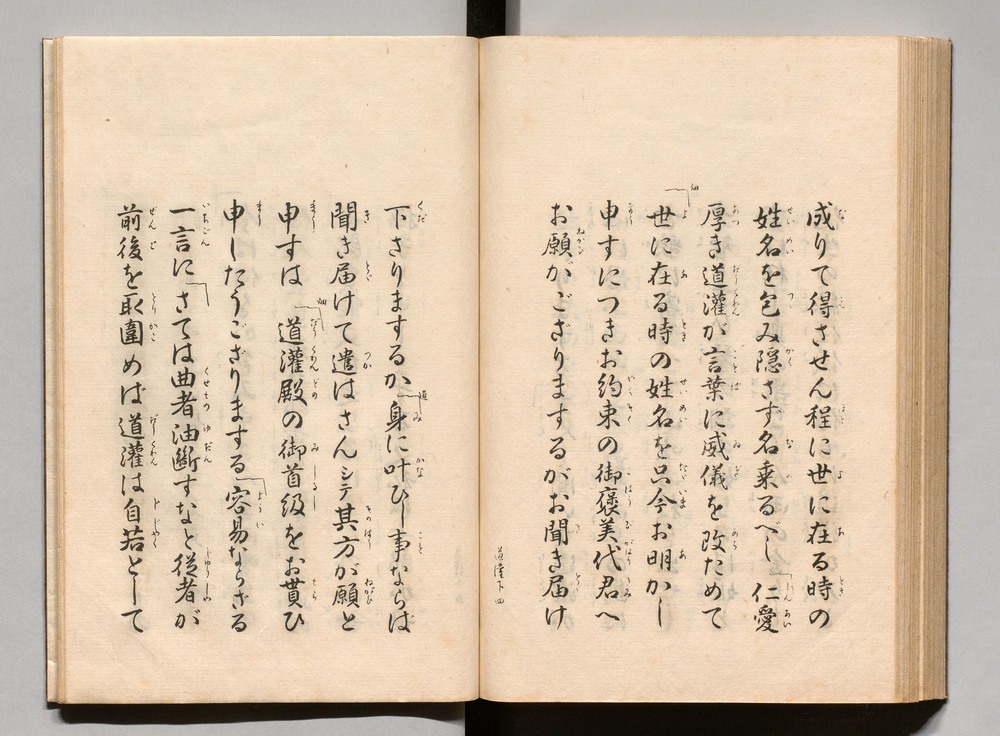 成りて得させん程に世に在る時の
姓名を包み隠さす名乗るべし 仁愛
厚き道灌が言葉に威儀を改ためて
世に在る時の姓名を只今お明かし
申すにつきお約束の御褒美代君へ
お願がござりまするがお聞き届け
道灌下 四
下さりまするか 身に叶ひし事ならは
聞き届けて遣はさんシテ其方が願と
申すは 道灌殿の御首級をお貰ひ
申したうござりまする 容易ならさる
一言に さては曲者油斷すなと従者が
前後を取圍めば道灌は自若として